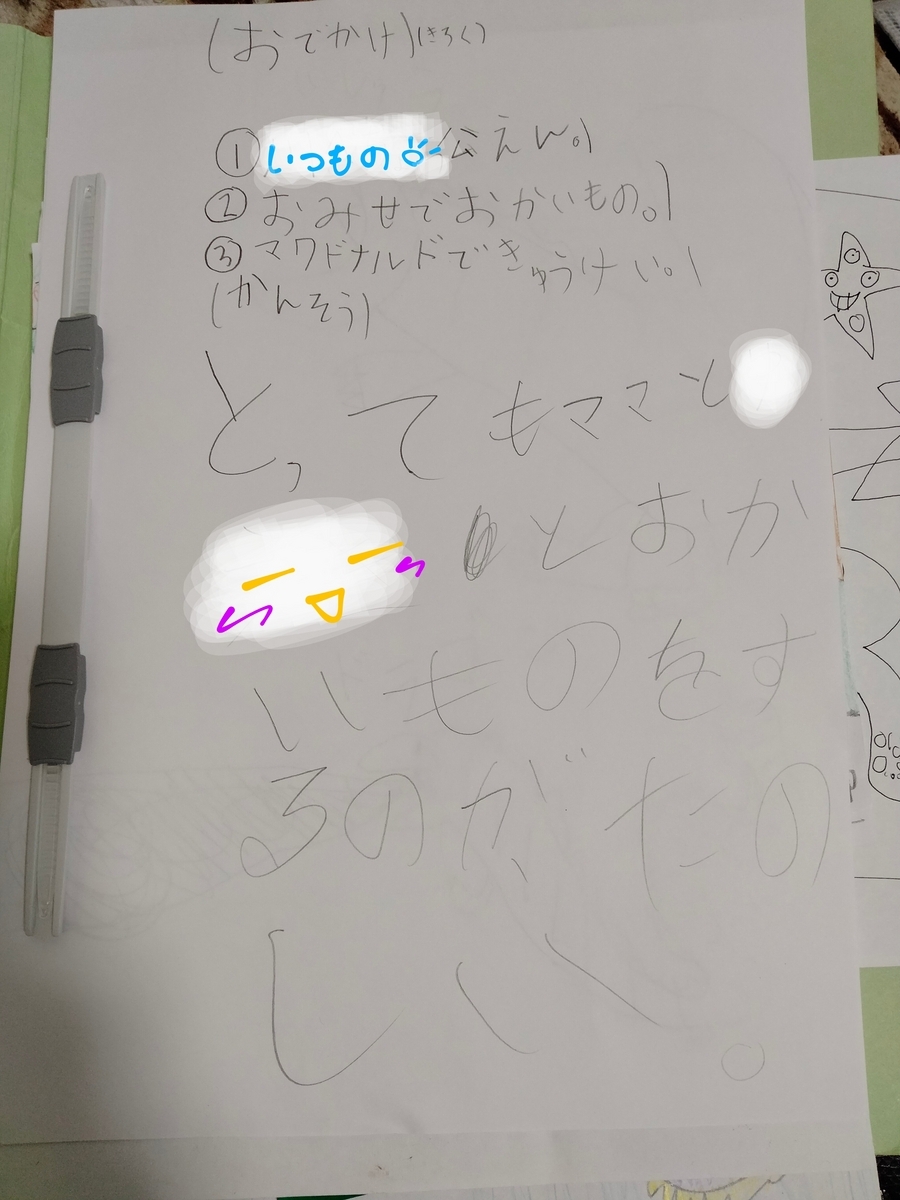 (おでかけ)(きろく)
①いつもの公えん。)
②おみせでおかいもの。)
③マクドナルドできゅうけい。)
(かんそう)
とってもママと
とおか
いものをす
るのがたの
しい。